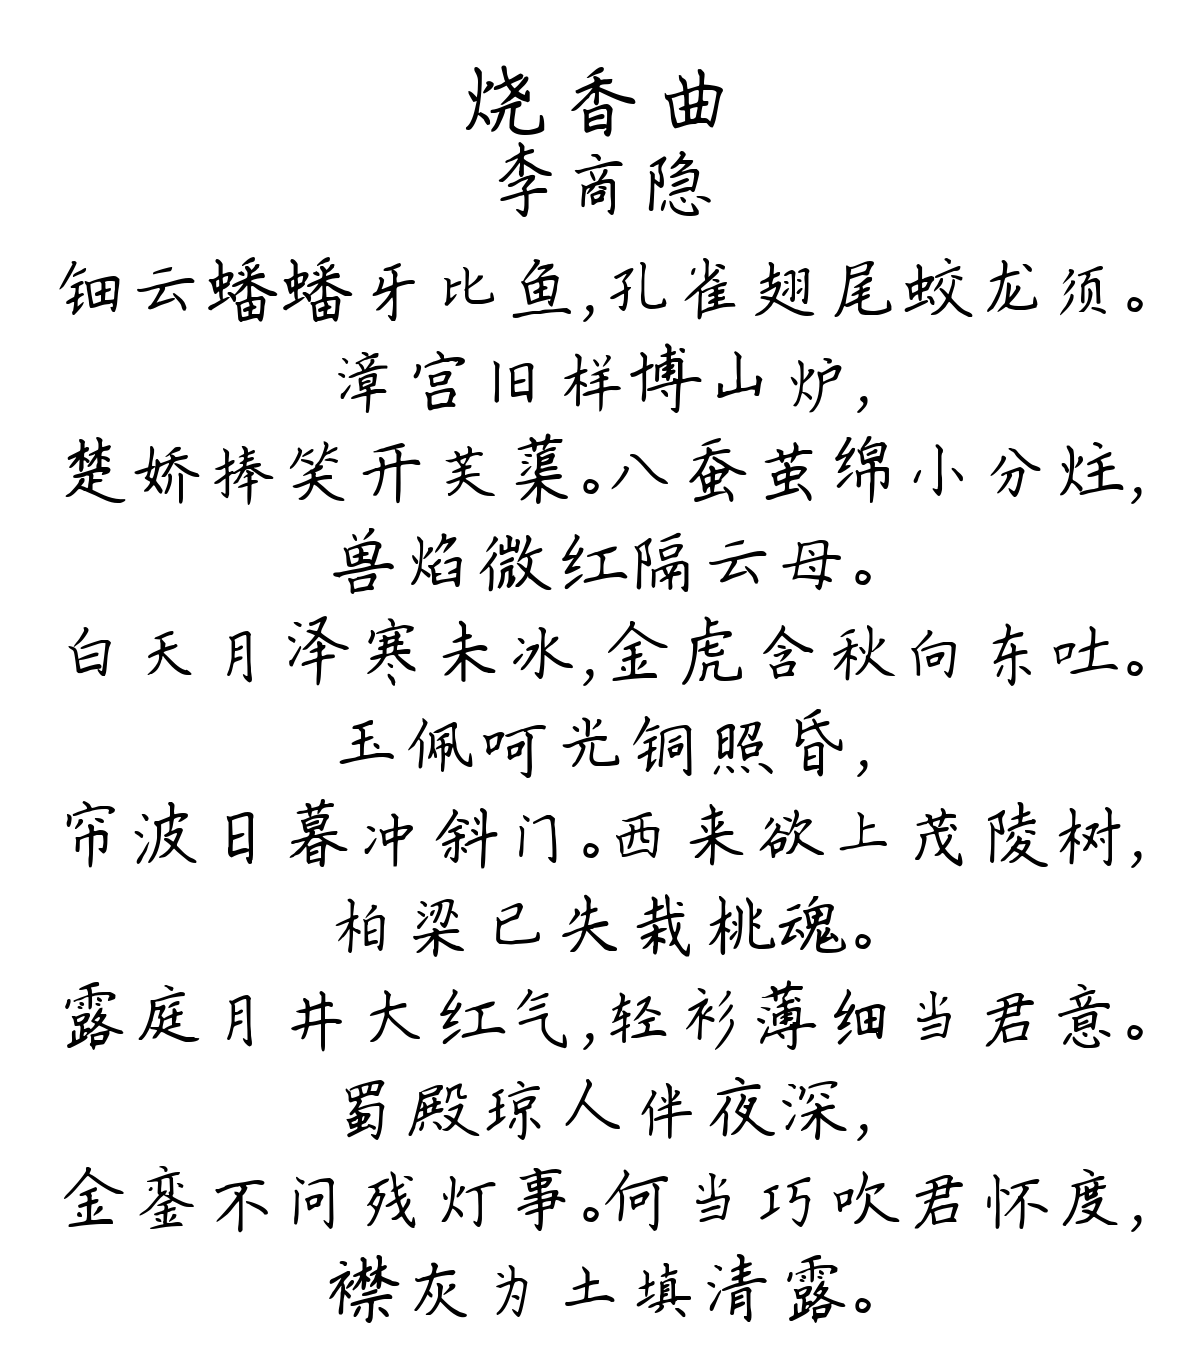 烧香曲
李商隐
钿云蟠蟠牙比鱼,孔雀翅尾蛟龙须。
漳宫旧样博山炉,
楚娇捧笑开芙蕖。八蚕茧绵小分炷,
兽焰微红隔云母。
白天月泽寒未冰,金虎含秋向东吐。
玉佩呵光铜照昏,
帘波日暮冲斜门。西来欲上茂陵树,
柏梁已失栽桃魂。
露庭月井大红气,轻衫薄细当君意。
蜀殿琼人伴夜深,
金銮不问残灯事。何当巧吹君怀度,
襟灰为土填清露。